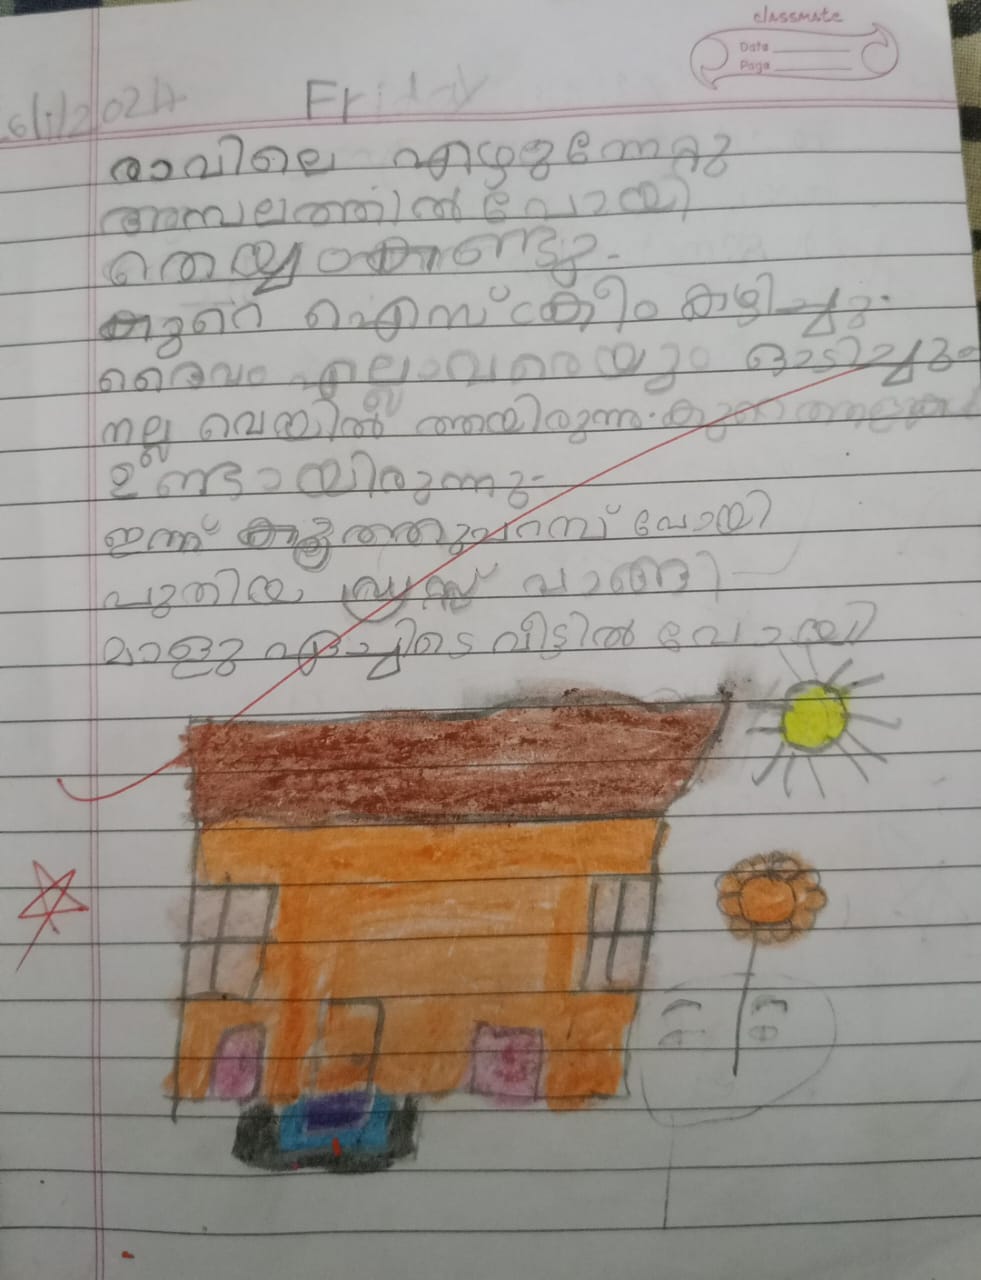 classmate
Date
Page
Friday
രാവിലെ എഴുന്നേറ്റു
അമ്പലത്തിൽ പോയി
തെയ്യം കണ്ടു.
കുറെ ഐസ്ക്രീം കഴിച്ചു.
ദൈവം എല്ലാവരെയും ഓടിച്ചു
നല്ല വെയിൽ ആയിരുന്നു.
ഉണ്ടായിരുന്നു.
ഇന്ന് പോയി
പുതിയ വാങ്ങി
മാളു വീട്ടിൽ പോയി